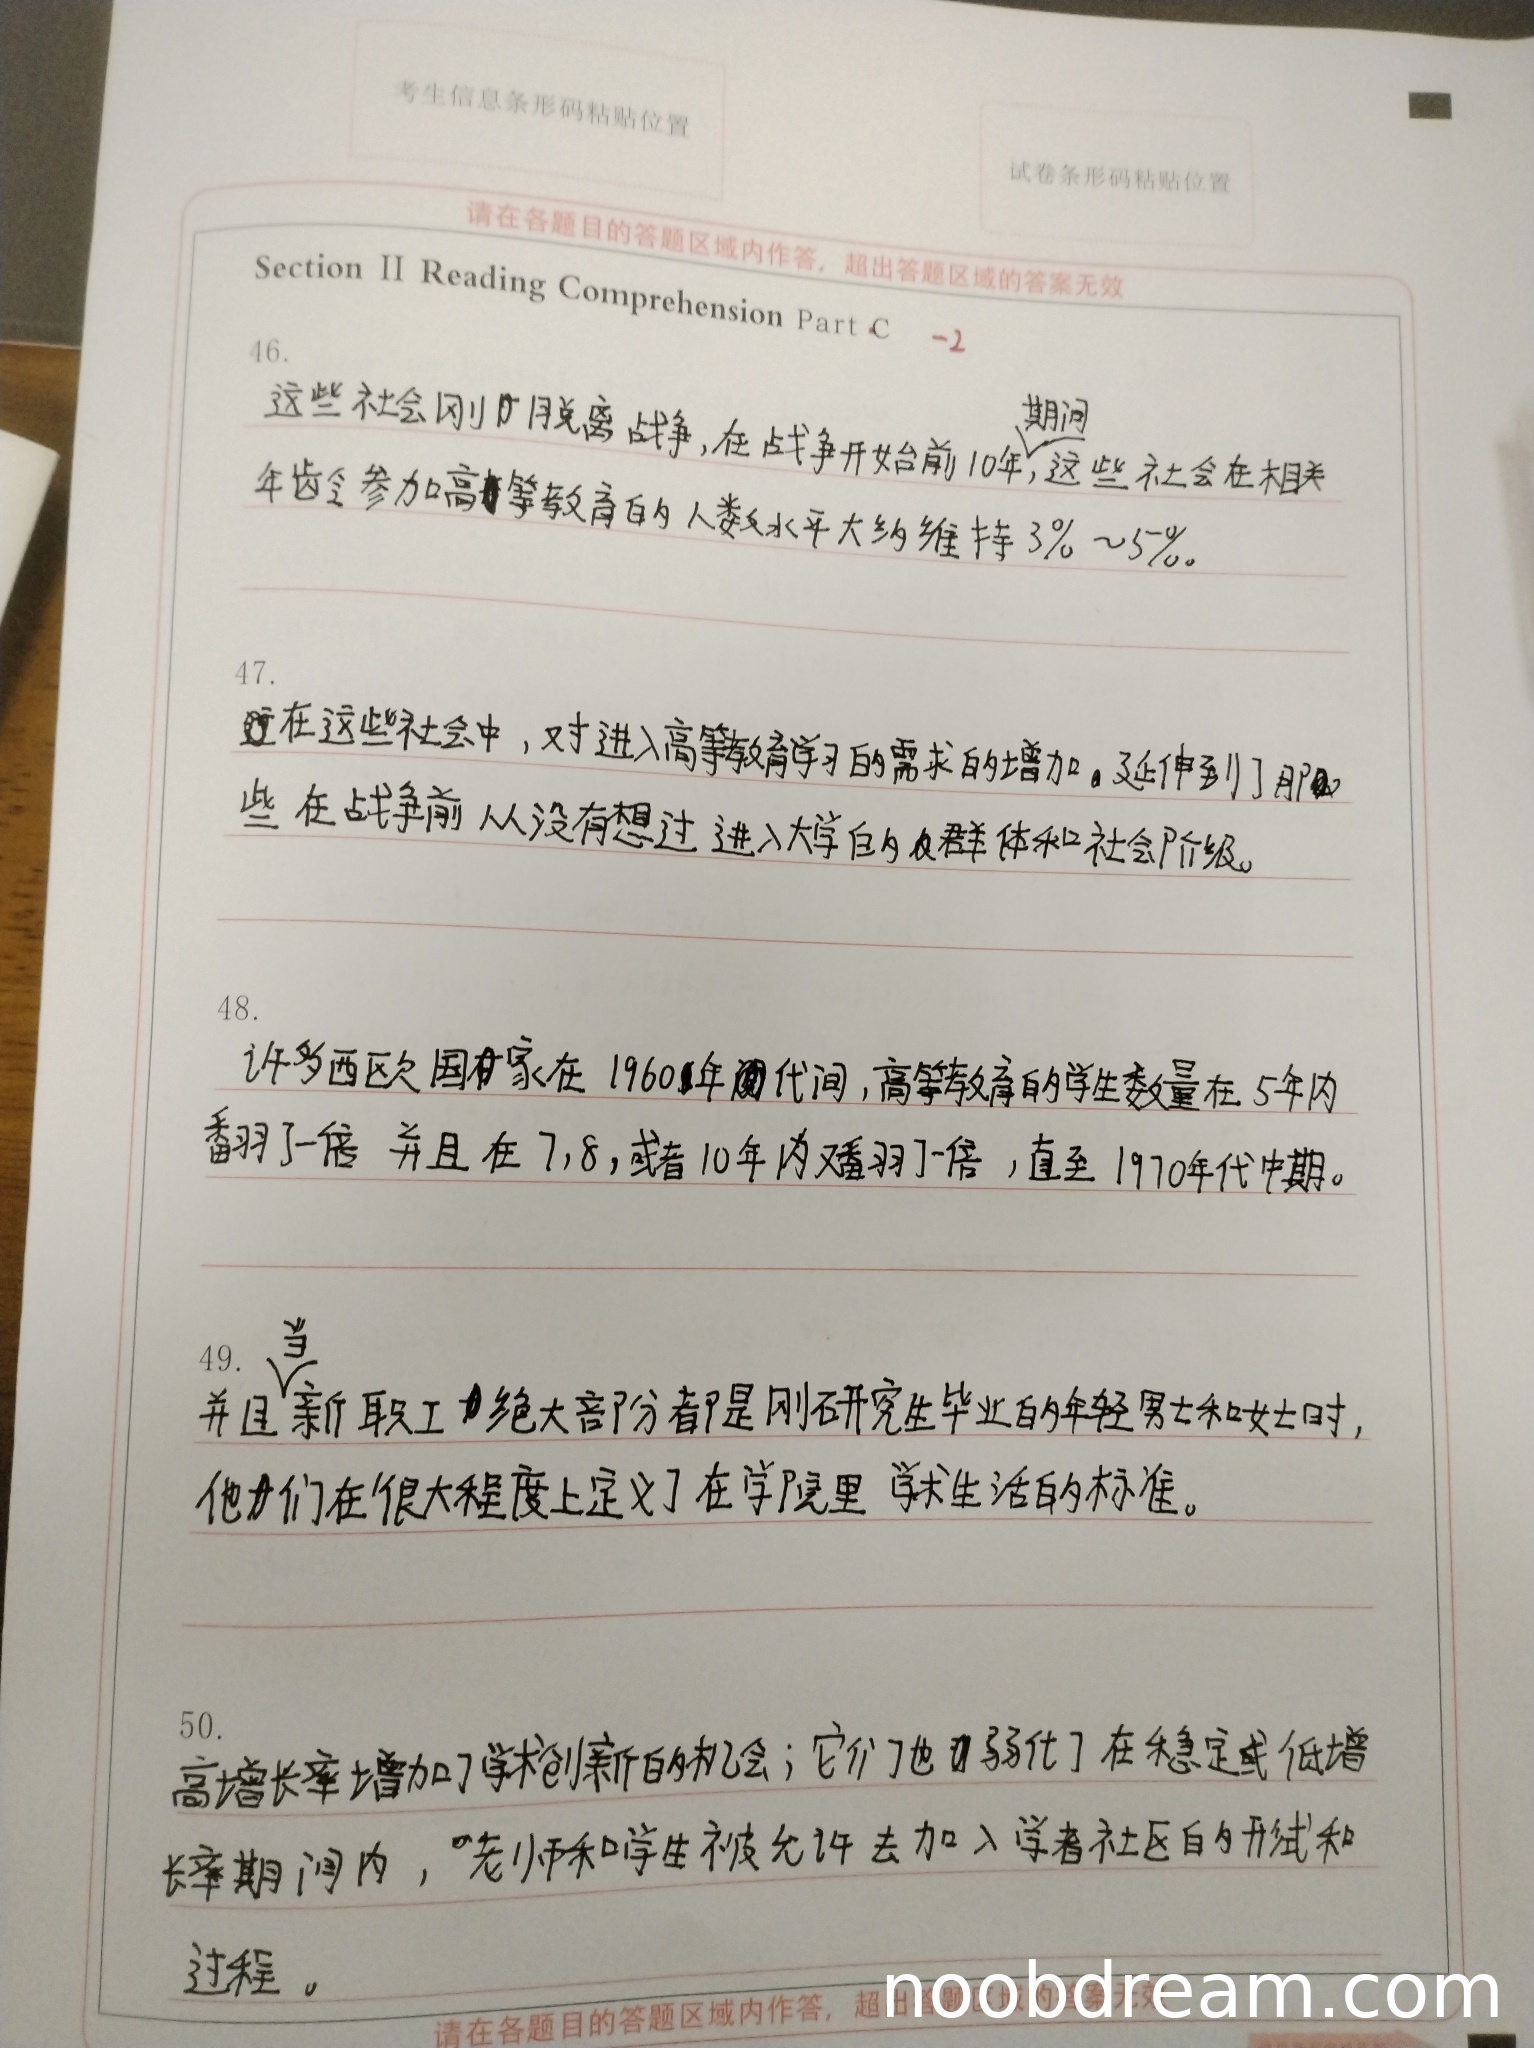 考生信息条形码粘贴位置
试卷条形码粘贴位置
请在各题目的答题区域内作答，超出答题区域的答案无效
Section II Reading Comprehension Part C -2
46.
期间
这些社会刚脱离战争,在战争开始前10年,这些社会在相关
年龄参加高等教育的人数水平大约维持3%~5%。
47.
在这些社会中,对进入高等教育学习的需求的增加。延伸到了那
些在战争前从没有想过进入大学的群体和社会阶级。
48.
许多西欧国家在1960年代间,高等教育的学生数量在5年内
翻了一倍 并且在7,8,或者10年内又翻了一倍,直至1970年代中期。
49.
当
并且新职工绝大部分都是刚研究生毕业的年轻男士和女士时,
他们在很大程度上定义了在学院里 学术生活的标准。
50.
高增长率增加了学术创新的机会;它们也弱化了在稳定或低增
长率期间内,老师和学生被允许去加入学者社区的形式和
过程。
noobdream.com
请在各题目的答题区域内作答，超出答题区域的答案无效